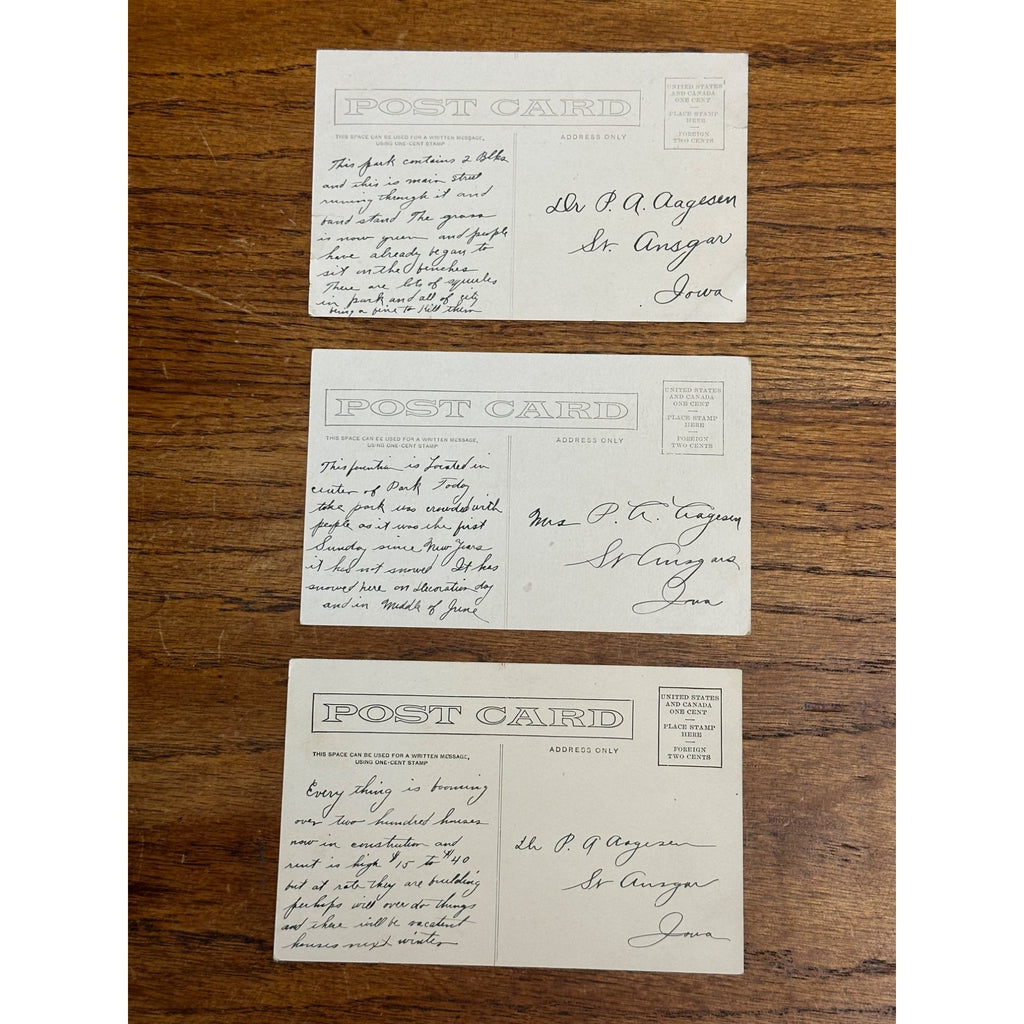 POST CARD
UNITED STATES
AND CANADA
ONE CENT
PLACE STAMP
HERE
FOREIGN
TWO CENTS
THIS SPACE CAN BE USED FOR A WRITTEN MESSAGE,
USING ONE-CENT STAMP
ADDRESS ONLY
This park contains 2 Blks
and this is main Street
running through it and
band stand The grass
is now green and people
have already began to
sit on the benches
There are lots of squirles
in park and all of city
being a fine to Kill them
Dr P. A. Aagesen
St. Ansgar
Iowa
POST CARD
UNITED STATES
AND CANADA
ONE CENT
PLACE STAMP
HERE
FOREIGN
TWO CENTS
THIS SPACE CAN BE USED FOR A WRITTEN MESSAGE,
USING ONE-CENT STAMP
ADDRESS ONLY
This fountian is Located in
center of Park Today
the park was crowded with
people as it was the first
Sunday since New Years
it has not snowed It has
snowed here on Decoration day
and in Middle of June
Mrs P. A. Aagesen
St Ansgars
Iowa
POST CARD
UNITED STATES
AND CANADA
ONE CENT
PLACE STAMP
HERE
FOREIGN
TWO CENTS
THIS SPACE CAN BE USED FOR A WRITTEN MESSAGE,
USING ONE-CENT STAMP
ADDRESS ONLY
Every thing is booming
over two hundred houses
now in construction and
rent is high $15 to $40
but at rate they are building
perhaps will over do things
and there will be vacatent
houses next winter
Dr P. A Aagesen
St Ansgar
Iowa